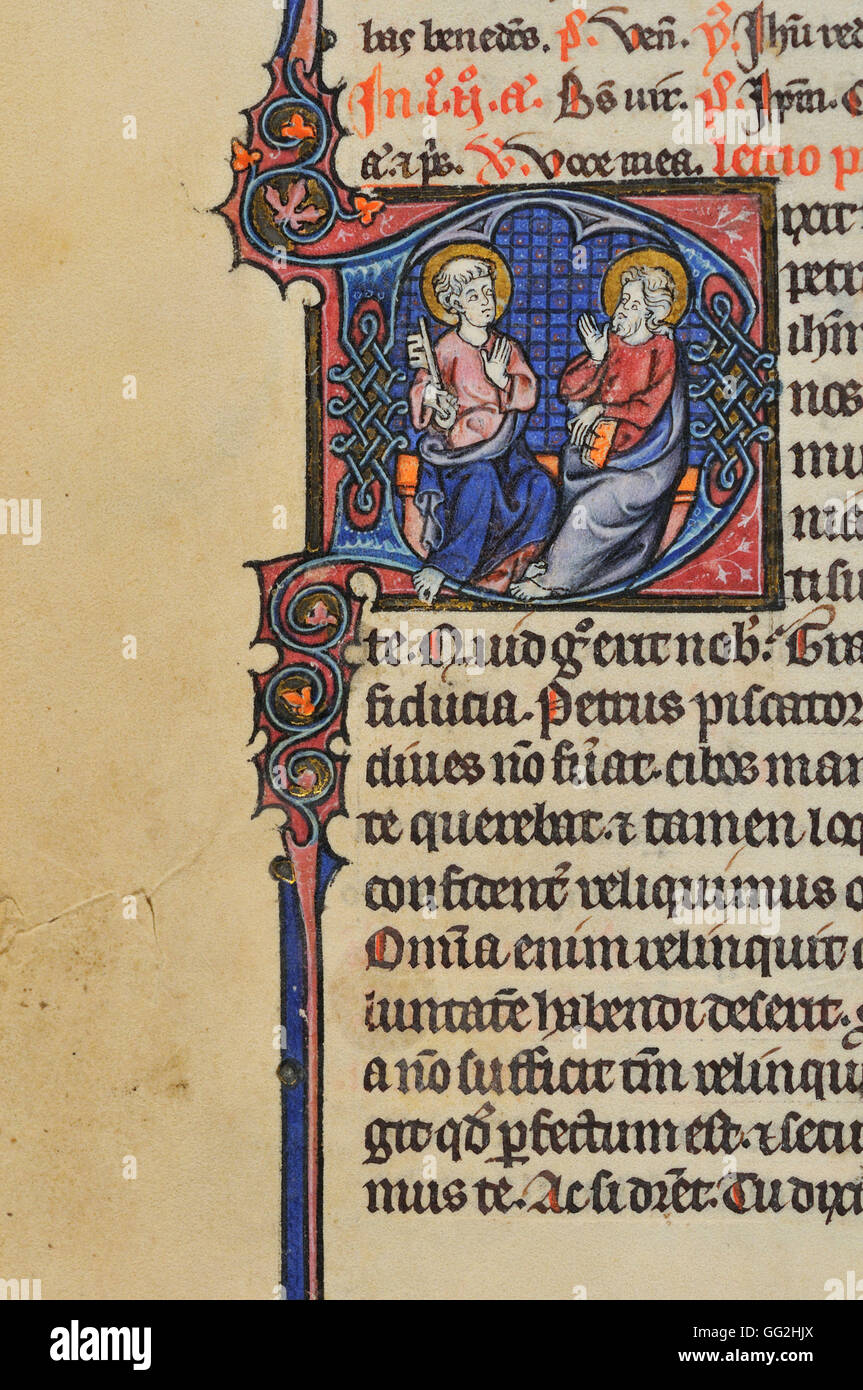 bas benedcs. p. Ven. V. Jhu red
In. i. ij. a. Bs uir. p. Ipm.
a. et ps. V. Voce mea. lectio p
Dixit
petr
ihm
nos
mu
na
ti su
te. Quid g erit nob. Gra
fiducia. Petrus piscator
diues no fuat. cibos man
te querebat. ⁊ tamen loq
confident reliquimus o
Omia enim relinquit
luntate habendi deserit.
a no sufficit tm relinqu
git qd pfectum est. ⁊ secu
mus te. Ac si dret. Tu dixi
alamy
Image ID: GG2HJX
www.alamy.com